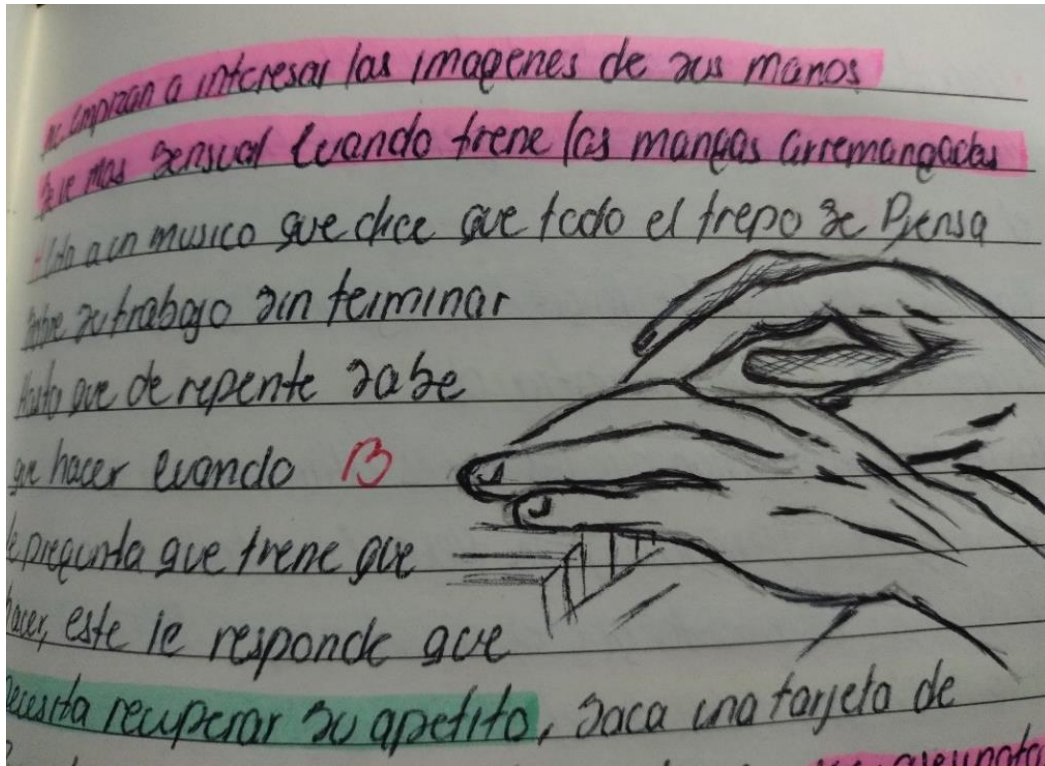 me empizan a interesar las imagenes de sus manos
mas sensual cuando tiene las mangas arremangadas
a un musico que dice que todo el tiepo se Piensa
sobre su trabajo sin terminar
Hasta que de repente sabe
que hacer cuando B
le pregunta que tiene que
hacer, este le responde que
necesita recuperar su apetito, saca una tarjeta de